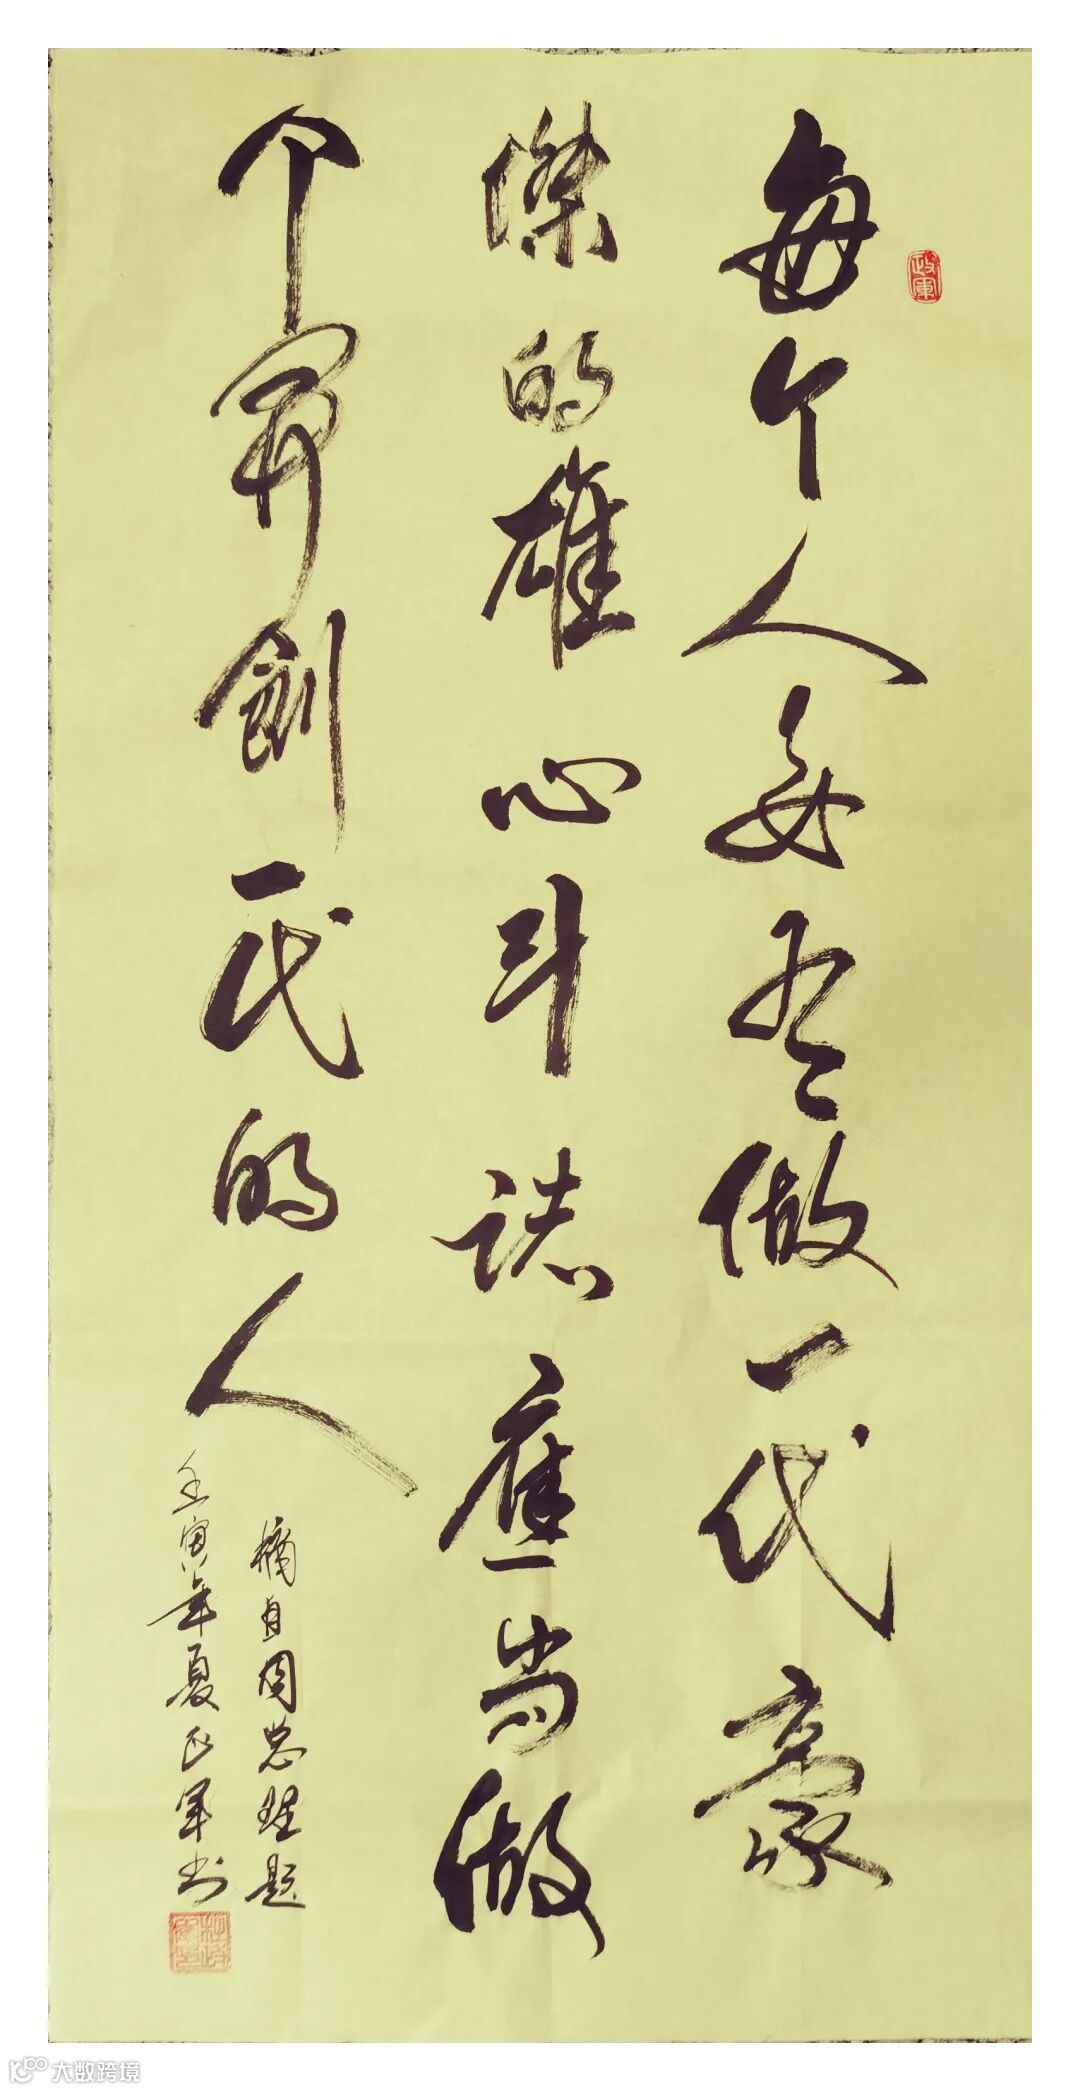 政軍
每个人要有做一代豪
傑的雄心斗誌應当做
个開創一代的人
摘自周总理题
壬寅年夏政军书
大数跨境